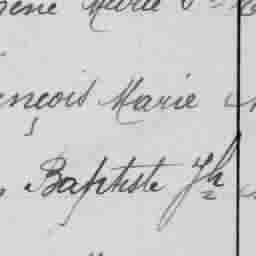 gène Marie
ençois Marie
Baptiste Jh